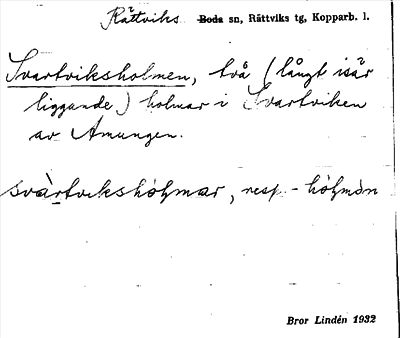 Rättviks Boda sn, Rättviks tg, Kopparb. l.
Svartviksholmen, två (långt isär
liggande) holmar i Svartviken
av Amungen.
svàrtvikshòḷmar, resp. -hòḷmǝn
Bror Lindén 1932